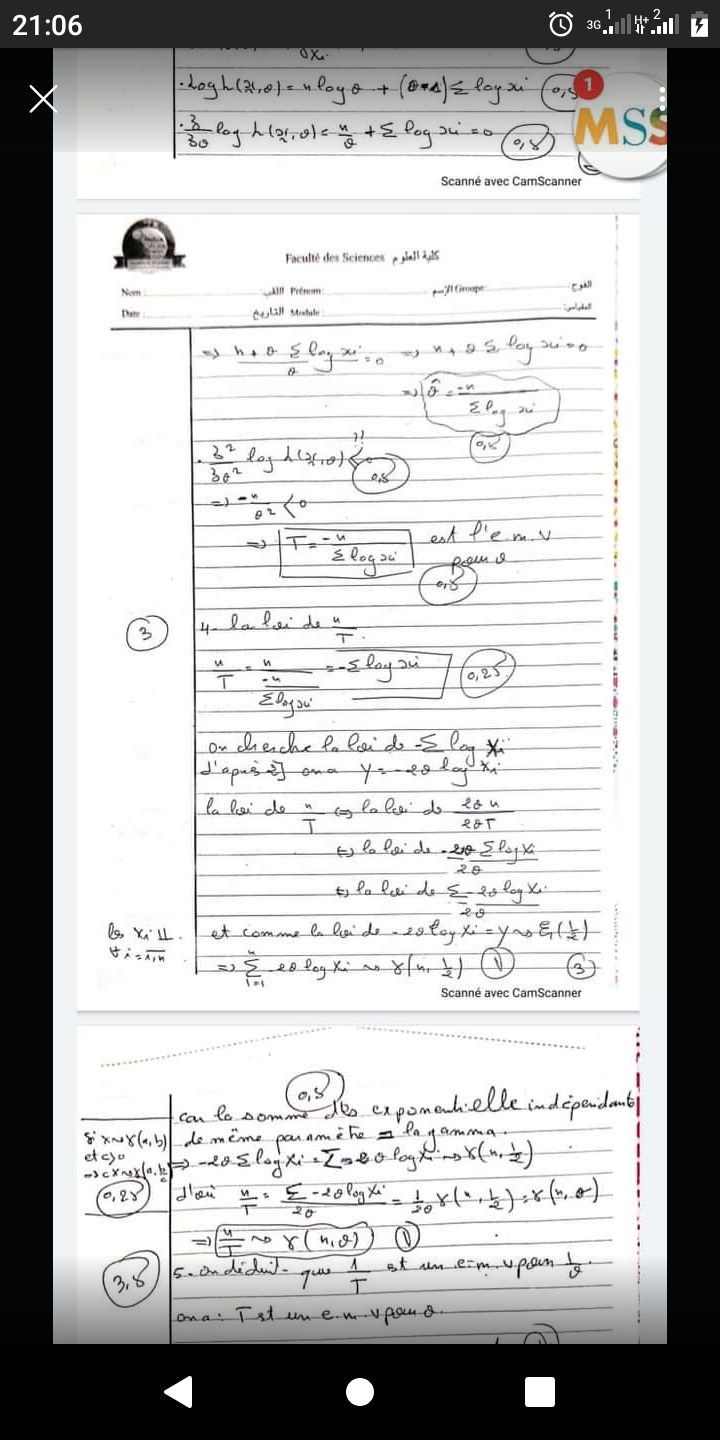 21:06
3G 1 H+ 2
1
MSS
. Log L(x,θ) = n log θ + (θ-1) Σ log xi (0,5)
. ∂/∂θ log L(x,θ) = n/θ + Σ log xi = 0 (0,5)
Scanné avec CamScanner
Faculté des Sciences كلية العلوم
Nom : اللقب Prénom: الإسم Groupe: الفوج:
Date : التاريخ Module: المقياس:
=> n + θ Σ log xi / θ = 0 => n + θ Σ log xi = 0
=> θ̂ = -n / Σ log xi
(0,5)
. ∂²/∂θ² log L(x,θ) < 0 (0,5)
=> -n/θ² < 0
=> T = -n / Σ log xi est l'e.m.v pour θ
(0,5)
(3) 4- la loi de n/T.
n/T = n / (-n / Σ log xi) = -Σ log xi (0,25)
on cherche la loi de -Σ log Xi
d'après 2] on a Y = -2θ log Xi
la loi de n/T <=> la loi de 2θn / 2θT
<=> la loi de -2θ Σ log Xi / 2θ
<=> la loi de Σ -2θ log Xi / 2θ
les Xi ⊥⊥ et comme la loi de -2θ log Xi = Y ~> ξ(1/2)
∀ i = 1,n => Σ -2θ log Xi ~> γ(n, 1/2) (1) (3)
Scanné avec CamScanner
(0,5)
car la somme des exponentielle indépendants
si X ~> γ(a,b) de même paramètre = la gamma.
et c>0
=> cX ~> γ(a, b/c) => -2θ Σ log Xi = Σ -2θ log Xi ~> γ(n, 1/2)
(0,25) d'où n/T = Σ -2θ log Xi / 2θ = 1/2θ γ(n, 1/2) = γ(n, θ)
=> n/T ~> γ(n, θ) (1)
(3,5) 5- on déduit que 1/T est un e.m.v pour 1/θ.
on a : T est un e.m.v pour θ.